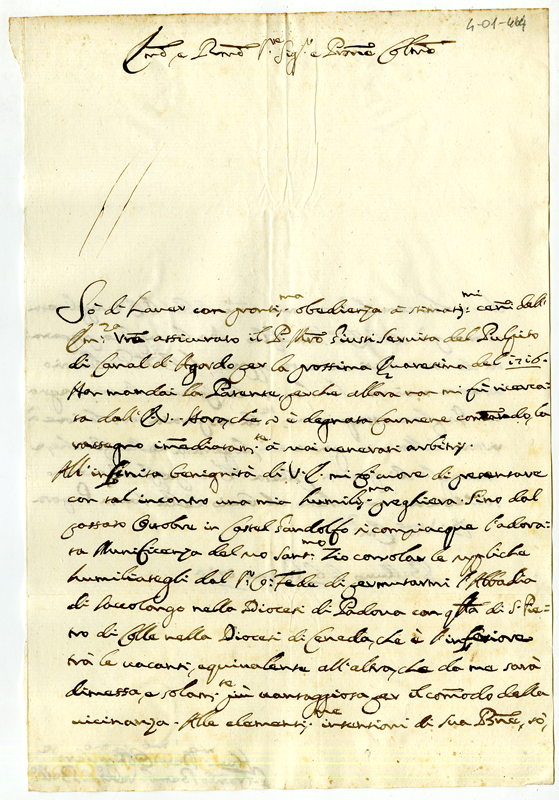 4-01-464
Em̃o e Rm̃o Sig.r e Prone Colmo
Sò di haver con prontis.ma obedienza à stimatis.mi cenni dell'
Em.za Vr̃a assicurato il P. Mr̃o Giusti Servita del Pulpito
di Canal di Agordo per la prossima Quaresima del 1716.
Non mandai la Patente, perche allora non mi fù ricerca-
ta dall' Ora, che si è degnata farmene comando, la
rassegno imediatam.te à suoi venerati arbitrij.
All' infinita benignità di V. E. mi dò cuore di presentare
con tal incontro una mia humilis.ma preghiera. Sino dal
passato Ottobre in Castel Gandolfo si compiacque l'adora-
ta Munificenza del suo Sant.mo Zio consolar le suppliche
humiliategli dal Fede di permutarmi l'Abbadia
di Saccolongo nella Diocesi di Padova con q̃lla di S. Pie-
tro di Colle nella Diocesi di Ceneda, che è l'inferiore
trà le vacanti, equivalente all'altra, che da me sarà
dimessa, e solam.te più vantaggiosa per il com̃odo della
vicinanza. Alle clementis.me intentioni di sua Bne, sò,